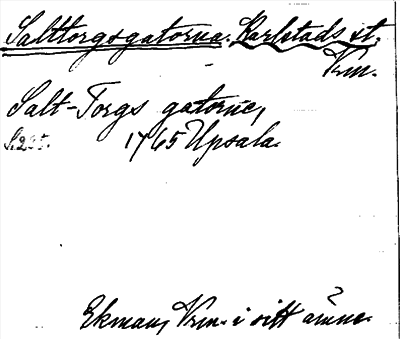 Salttorgsgatorna. Karlstads st.
Vrm.
Salt-Torgs gatorne,
S. 225. 1765 Upsala.
Ekman, Vrm. i sitt ämne.